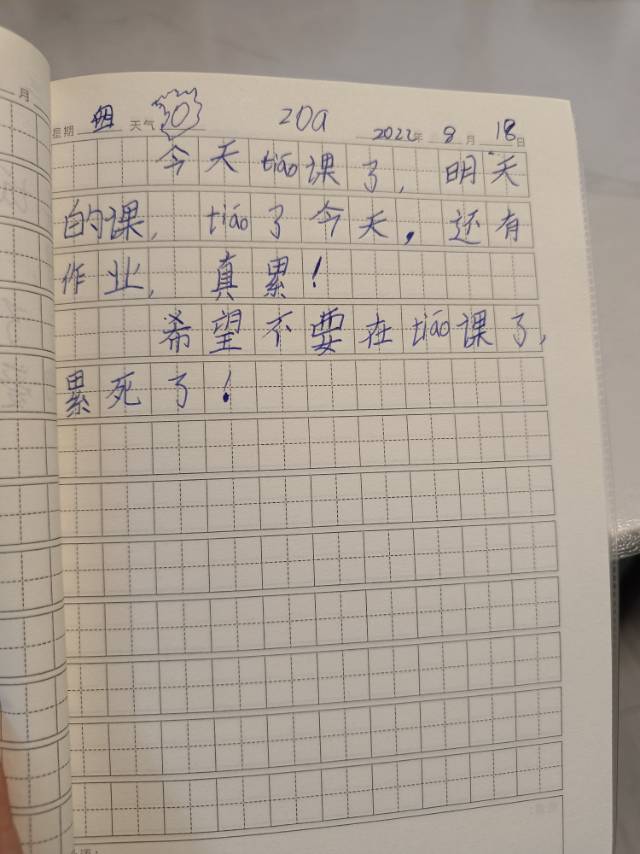 月
星期 四 天气 20a 2022年 8月 18日
今天tiáo课了，明天
的课，tiáo了今天，还有
作业，真累！
希望不要在tiáo课了，
累死了！